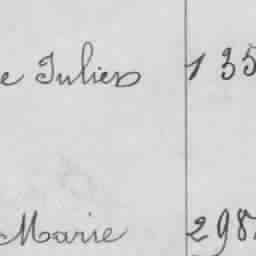 e Julien 135
Marie 298